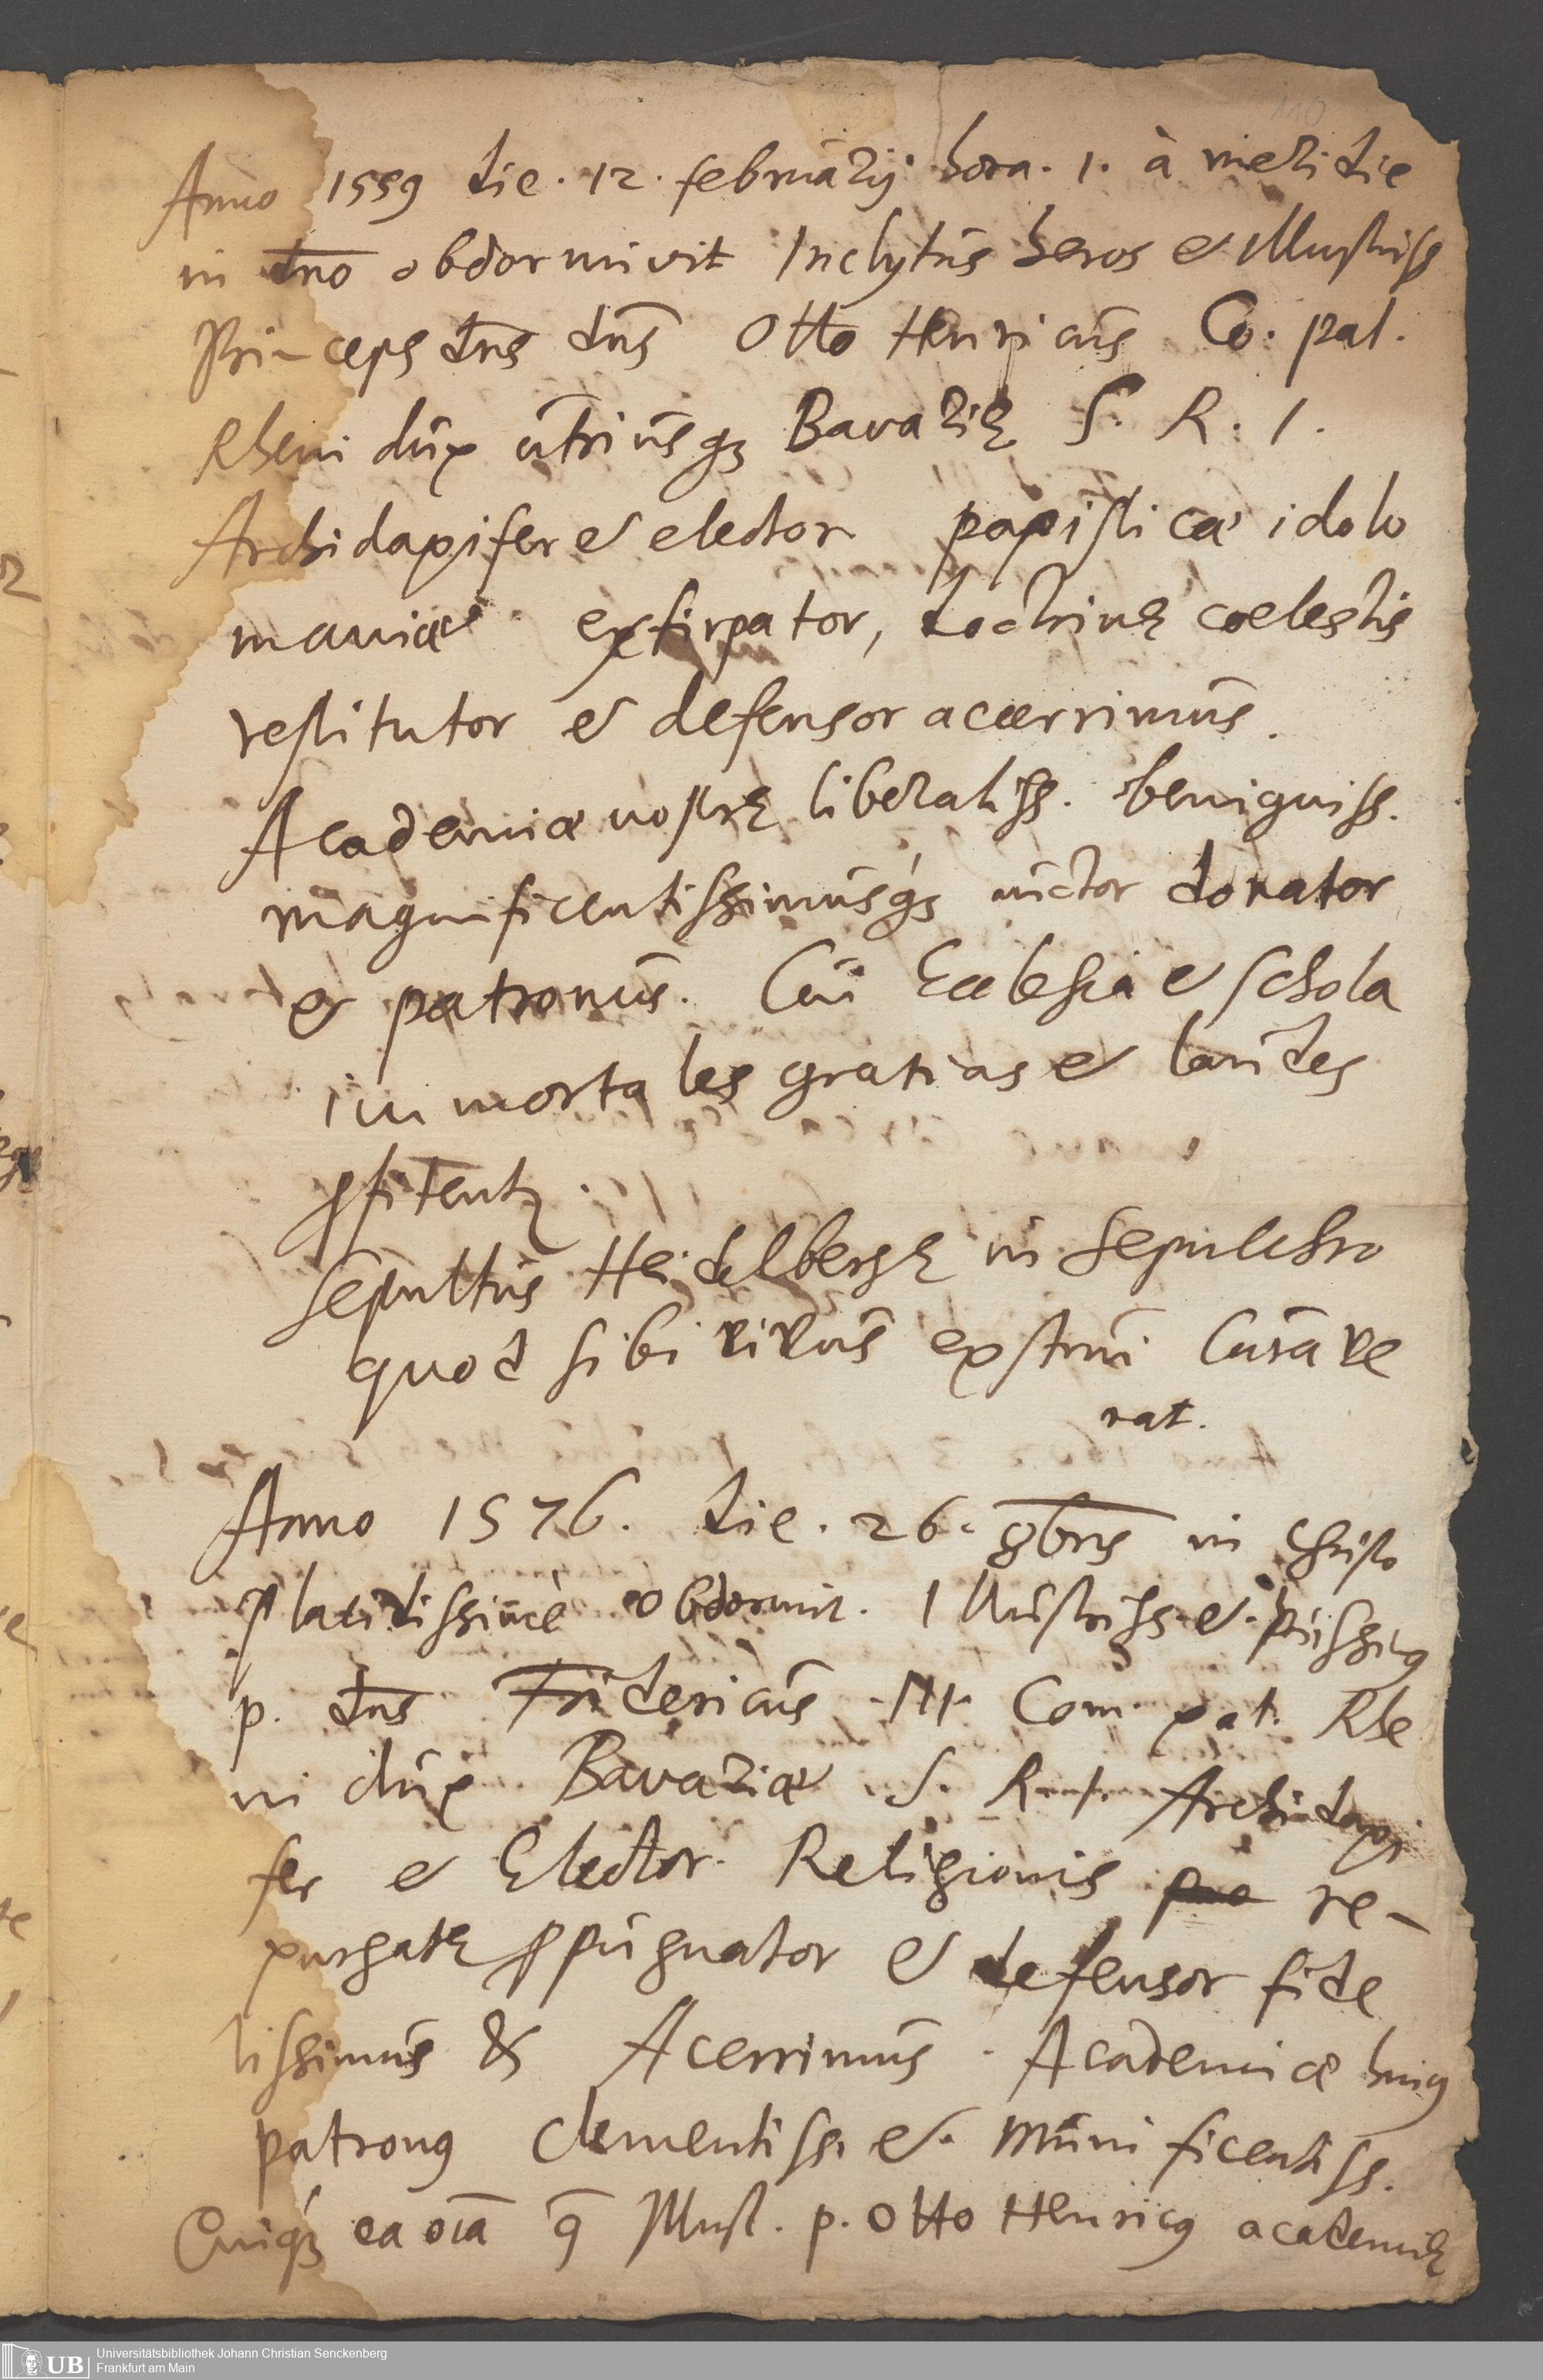 110
Anno 1559 die. 12. februarij hora. 1. à meridie
in dno obdormivit Inclytus heros et Illustriss
Princeps dns dns Otto Henricus Co. pal.
Rheni dux utriusq; Bavarię S. R. I.
Archidapifer et elector papisticae idolo
maniae extirpator, doctrinę coelestis
restitutor et defensor acaerrimus.
Academiae nostrę liberaliss. benigniss.
magnificentissimusq; auctor donator
et patronus. Cui Ecclesia et schola
immortales gratias et laudes
pfitent.
sepultus Heidelbergę in sepulchro
quod sibi vivus exstrui Curave
rat.
Anno 1576. die. 26. 8bris in Christo
placidissimè obdormit. Illustriss. et piissimus
p. dns Fridericus III. Com. pal. Rhe
ni dux Bavariae S. R. I. Archidapi
fer et Elector Religionis pro re-
purgatę ppugnator et defensor fide
lissimus & Acerrimus. Academiae huius
patronus clementiss. et munificentiss.
Cuiq; ea oia q Illust. p. Otto Henricus academię
UB Universitätsbibliothek Johann Christian Senckenberg
Frankfurt am Main